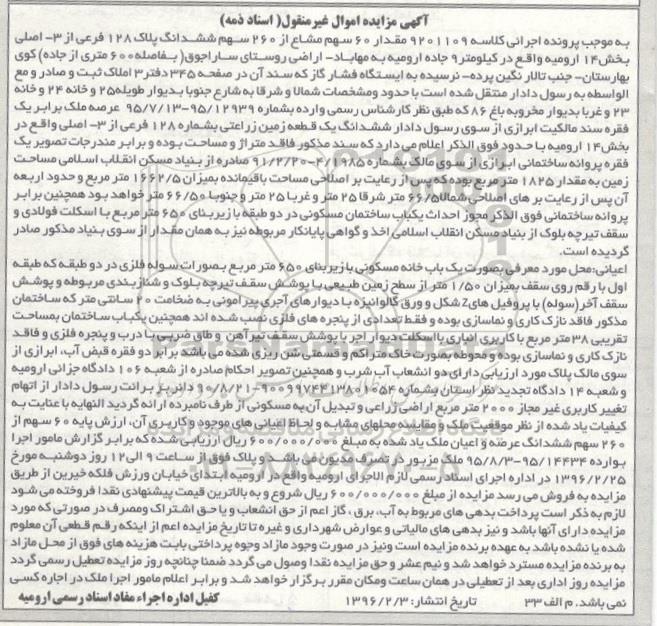 آگهی مزایده اموال غیرمنقول( اسناد ذمه)
به موجب پرونده اجرائی کلاسه 9201109 مقدار 60 سهم مشاع از 260 سهم ششدانگ پلاک 128 فرعی از 3- اصلی
بخش14 ارومیه واقع در کیلومتر9 جاده ارومیه به مهاباد- اراضی روستای ساراجوق( بفاصله600 متری از جاده) کوی
بهارستان- جنب تالار نگین پرده- نرسیده به ایستگاه فشار گاز که سند آن در صفحه 345 دفتر3 املاک ثبت و صادر و مع
الواسطه به رسول دادار منتقل شده است با حدود ومشخصات شمالا و شرقا به شارع جنوبا بدیوار طویله25 و خانه 24 و خانه
23 و غربا بدیوار مخروبه باغ 86 که طبق نظر کارشناس رسمی وارده بشماره 12939-95/7/13-95 عرصه ملک برابر یک
فقره سند مالکیت ابرازی از سوی رسول دادار ششدانگ یک قطعه زمین زراعتی بشماره 128 فرعی از 3- اصلی واقع در
بخش14 ارومیه با حدود فوق الذکر اعلام می دارد که سند مذکور فاقد متراژ و مساحت بوده و برابر مندرجات تصویر یک
فقره پروانه ساختمانی ابرازی از سوی مالک بشماره 4/1985-91/2/20 صادره از بنیاد مسکن انقلاب اسلامی مساحت
زمین به مقدار 1825 متر مربع بوده که پس از رعایت بر اصلاحی مساحت باقیمانده بمیزان 1662/5 متر مربع و حدود اربعه
آن پس از رعایت بر های اصلاحی شمالا66/5 متر شرقا 25 متر و غربا 25 متر و جنوبا 66/50 متر خواهد بود همچنین برابر
پروانه ساختمانی فوق الذکر مجوز احداث یکباب ساختمان مسکونی در دو طبقه با زیربنای 650 متر مربع با اسکلت فولادی و
سقف تیرچه بلوک از بنیاد مسکن انقلاب اسلامی اخذ و گواهی پایانکار مربوطه نیز به همان مقدار از سوی بنیاد مذکور صادر
گردیده است.
اعیانی:محل مورد معرفی بصورت یک باب خانه مسکونی با زیربنای 650 متر مربع بصورت سوله فلزی در دو طبقه که طبقه
اول با رقم روی سقف بمیزان 1/50 متر از سطح زمین طبیعی با پوشش سقف تیرچه بلوک و شناژبندی مربوطه و پوشش
سقف آخر(سوله) با پروفیل هایZ شکل و ورق گالوانیزه با دیوارهای آجری پیرامونی به ضخامت 20 سانتی متر که ساختمان
مذکور فاقد نازک کاری و نماسازی بوده و فقط تعدادی از پنجره های فلزی نصب شده اند همچنین یکباب ساختمان بمساحت
تقریبی 38متر مربع با کاربری انباری با اسکلت دیوار آجر با پوشش سقف تیرآهن و طاق ضربی با درب و پنجره فلزی و فاقد
نازک کاری و نماسازی بوده و محوطه بصورت خاک متراکم و قسمتی شن ریزی شده می باشد برابر دو فقره قبض آب، ابرازی از
سوی مالک پلاک مورد ارزیابی دارای دو انشعاب آب شرب و همچنین تصویر احکام صادره از شعبه 106 دادگاه جزائی ارومیه
و شعبه 14 دادگاه تجدید نظر استان بشماره 9009974413801054-90/8/21 دائر بر برائت رسول دادار از اتهام
تغییر کاربری غیر مجاز 2000 متر مربع اراضی زراعی و تبدیل آن به مسکونی از طرف نامبرده ارائه گردید النهایه با عنایت به
کیفیات یاد شده از نظر موقعیت ملک و مقایسه محلهای مشابه و لحاظ اعیانی های موجود و کاربری آن، ارزش پایه 60 سهم از
260 سهم ششدانگ عرصه و اعیان ملک یاد شده به مبلغ 600/000/000 ریال ارزیابی شده که برابر گزارش مامور اجرا
بوارده 14434-95/8/3-95 ملک مزبور در تصرف مدیون می باشد و پلاک فوق از ساعت 9 الی12 روز دوشنبه مورخ
1396/2/25 در اداره اجرای اسناد رسمی لازم الاجرای ارومیه واقع در ارومیه ابتدای خیابان ورزش فلکه خیرین از طریق
مزایده به فروش می رسد مزایده از مبلغ 600/000/000 ریال شروع و به بالاترین قیمت پیشنهادی نقدا فروخته می شود
لازم به ذکر است پرداخت بدهی های مربوط به آب، برق، گاز اعم از حق انشعاب و یا حق اشتراک ومصرف در صورتی که مورد
مزایده دارای آنها باشد و نیز بدهی های مالیاتی و عوارض شهرداری و غیره تا تاریخ مزایده اعم از اینکه رقم قطعی آن معلوم
شده یا نشده باشد به عهده برنده مزایده است ونیز در صورت وجود مازاد وجوه پرداختی بابت هزینه های فوق از محل مازاد
به برنده مزایده مسترد خواهد شد و نیم عشر و حق مزایده نقدا وصول می گردد ضمنا چنانچه روز مزایده تعطیل رسمی گردد
مزایده روز اداری بعد از تعطیلی در همان ساعت ومکان مقرر برگزار خواهد شد و برابر اعلام مامور اجرا ملک در اجاره کسی
نمی باشد. م الف 33 تاریخ انتشار: 1396/2/3 کفیل اداره اجراء مفاد اسناد رسمی ارومیه